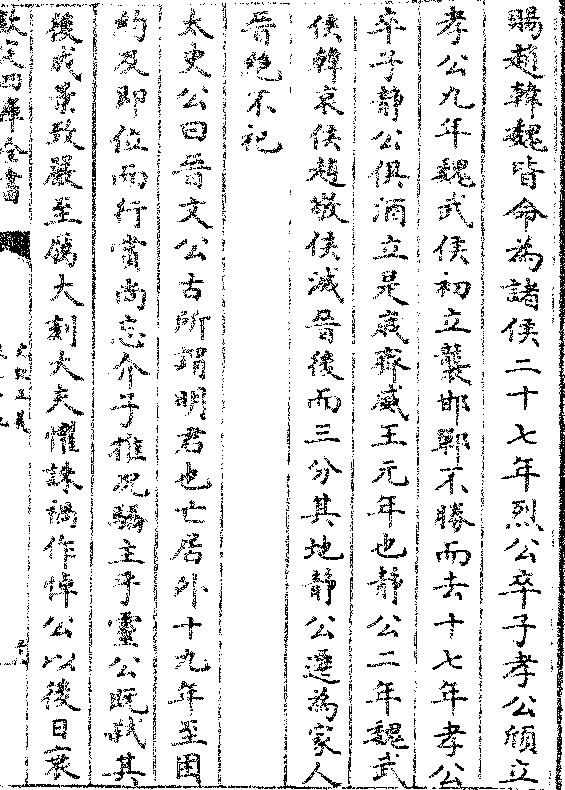 賜趙韓魏皆命為諸侯二十七年烈公卒子孝公頎立
孝公九年魏武侯初立襲邯鄲不勝而去十七年孝公
卒子静公俱酒立是歳齊威王元年也静公二年魏武
侯韓哀侯趙敬侯滅晉後而三分其地静公遷為家人
晉絶不祀
太史公曰晉文公古所謂明君也亡居外十九年至困
約及即位而行賞尚忘介子推况驕主乎靈公既弑其
後成景致嚴至厲大刻大夫懼誅禍作悼公以後日衰
欽定四庫全書
史記正義